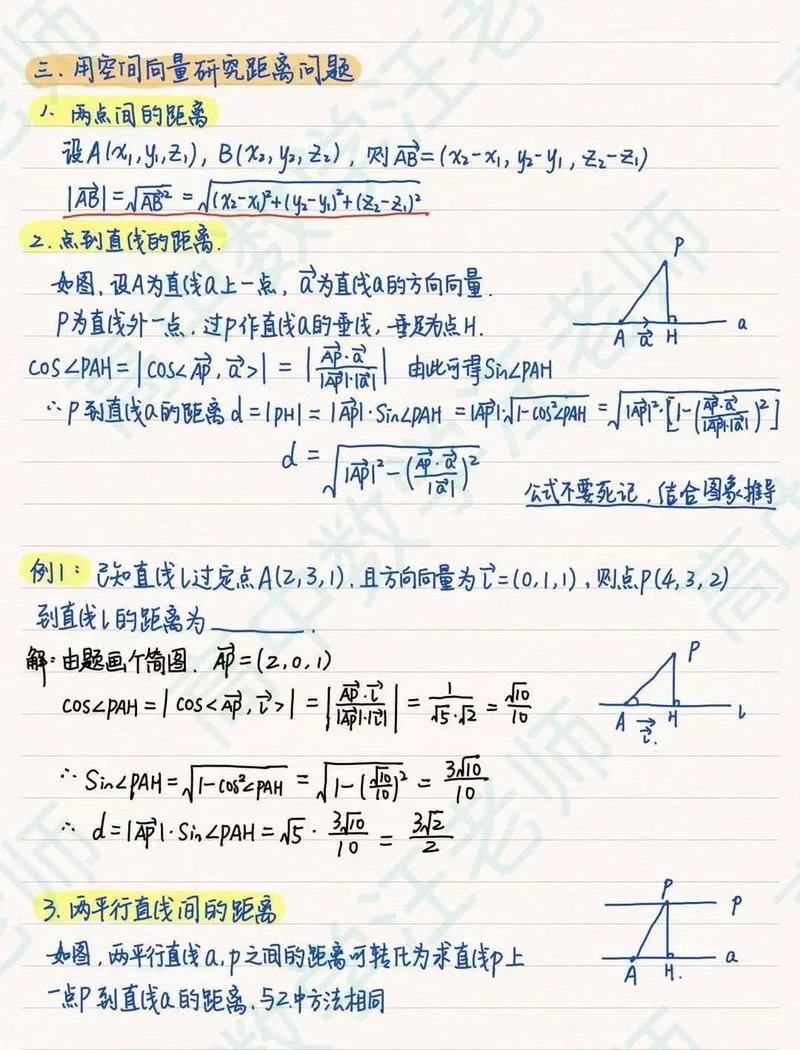 三、用空间向量研究距离问题
1、两点间的距离
设A(x₁,y₁,z₁), B(x₂,y₂,z₂), 则AB⃗=(x₂-x₁, y₂-y₁, z₂-z₁)
|AB⃗|=√(AB⃗²) = √((x₂-x₁)²+(y₂-y₁)²+(z₂-z₁)²)
2.点到直线的距离.
如图,设A为直线a上一点, a⃗为直线a的方向向量.
P为直线外一点,过P作直线a的垂线,垂足为点H.
P
A a⃗ H a
cos∠PAH=|cos<AP⃗,a⃗>| = |AP⃗·a⃗/(|AP⃗|·|a⃗|)| 由此可得sin∠PAH
∴P到直线a的距离d=|PH|=|AP⃗|·sin∠PAH=|AP⃗|·√(1-cos²∠PAH)=√(|AP⃗|²·[1-(AP⃗·a⃗/(|AP⃗|·|a⃗|))²])
d=√(|AP⃗|²-(AP⃗·a⃗/|a⃗|)²)
公式不要死记,结合图象推导
例1:已知直线l过定点A(2,3,1),且方向向量为l⃗=(0,1,1),则点P(4,3,2)
到直线l的距离为______.
解:由题画个简图. AP⃗=(2,0,1)
cos∠PAH=|cos<AP⃗,l⃗>|=|AP⃗·l⃗/(|AP⃗|·|l⃗|)|=1/(√5·√2)=√10/10
P
A l⃗. H l
∴sin∠PAH=√(1-cos²∠PAH)=√(1-(√10/10)²)=3√10/10
∴d=|AP⃗|·sin∠PAH=√5·3√10/10=3√2/2
3.两平行直线间的距离
如图,两平行直线a,p之间的距离可转化为求直线p上
一点P到直线a的距离,与2.中方法相同
P p
A H. a
高中数学汪老师